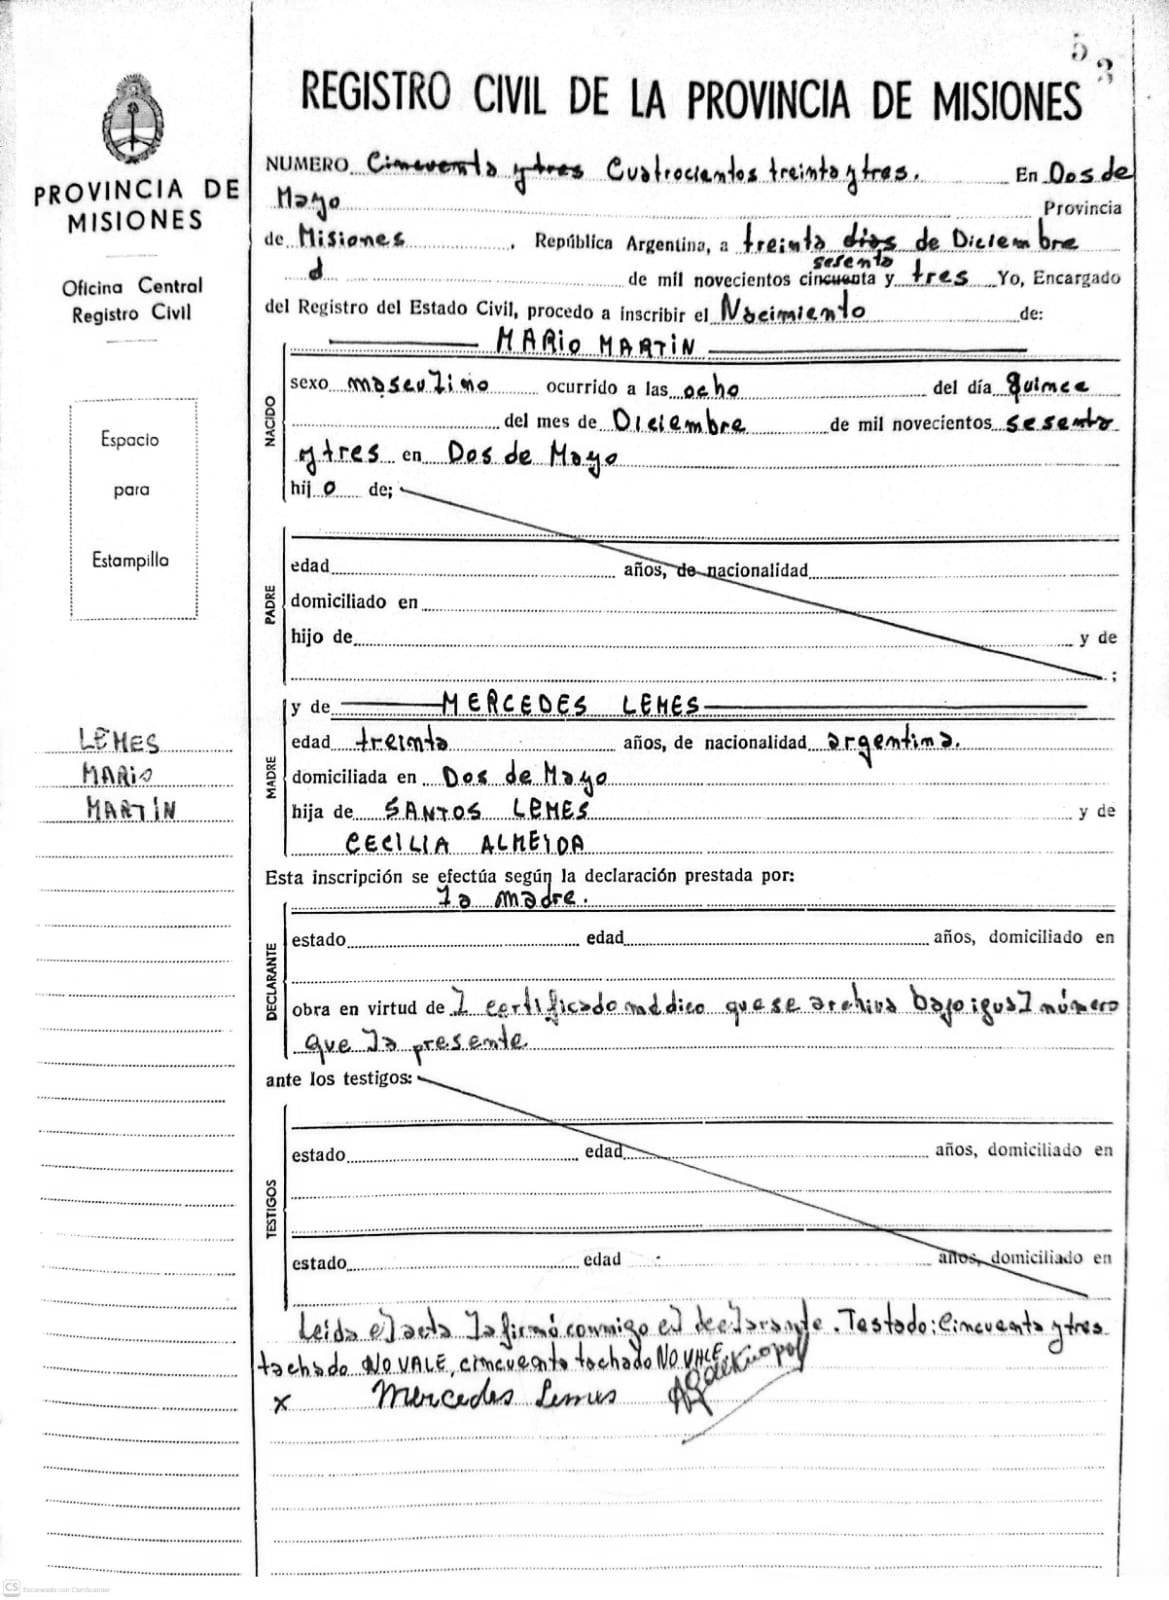 53
REGISTRO CIVIL DE LA PROVINCIA DE MISIONES
PROVINCIA DE
MISIONES
Oficina Central
Registro Civil
Espacio
para
Estampilla
LEMES
MARIO
MARTIN
NUMERO Cincuenta y tres Cuatrocientos treinta y tres. En Dos de
Mayo Provincia
de Misiones, República Argentina, a treinta dias de Diciembre
sesenta
d de mil novecientos cincuenta y tres Yo, Encargado
del Registro del Estado Civil, procedo a inscribir el Nacimiento de:
NACIDO
MARIO MARTIN
sexo masculino ocurrido a las ocho del día quince
del mes de Diciembre de mil novecientos sesenta
y tres en Dos de Mayo
hijo de;
PADRE
edad años, de nacionalidad
domiciliado en
hijo de y de
;
MADRE
y de MERCEDES LEMES
edad treinta años, de nacionalidad argentina.
domiciliada en Dos de Mayo
hija de SANTOS LEMES y de
CECILIA ALMEIDA
Esta inscripción se efectúa según la declaración prestada por:
DECLARANTE
la madre.
estado edad años, domiciliado en
obra en virtud de l certificado médico que se archiva bajo igual número
que la presente
ante los testigos:
TESTIGOS
estado edad años, domiciliado en
estado edad años, domiciliado en
Leida el acta la firmó conmigo el declarante. Testado: Cincuenta y tres
tachado NO VALE, cincuenta tachado NO VALE.
x Mercedes Lemes
CS Escaneado con CamScanner